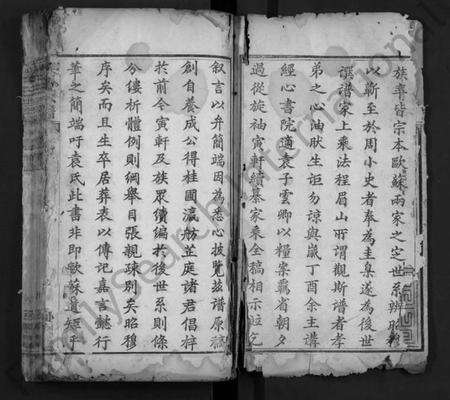 族尊皆宗本歐蘇兩家之定世系辨昭穆
以蘄至於周小史者奉為圭臬遂為後世
譔譜家上乘法程眉山所謂觀斯譜者孝
弟之心油狀生詎勿諒與歲丁酉余主講
經心書院適袁子雲卿以糧案羈省朝夕
過從旋袖寅軒續纂家乘全稿相示竝乞
叙言以弁簡端因為悉心披覽茲譜原稿
創自養成公得桂園瀛舫芷庭諸君倡梓
於前今寅軒及族眾續編於後世系則條
分僂析體例則綱舉目張親疎別矣昭穆
序矣而且生卒居葬表以傳記嘉言懿行
華之簡端吁袁氏此書非即歐蘇遺矩乎
FamilySearch International